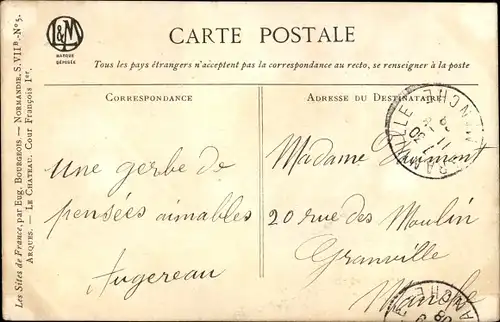 L&M
MARQUE
DÉPOSÉE
CARTE POSTALE
Tous les pays étrangers n'acceptent pas la correspondance au recto, se renseigner à la poste
CORRESPONDANCE
ADRESSE DU DESTINATAIRE
Une gerbe de
pensées aimables
Augereau
Madame
20 rue des Moulin
Granville
Manche
Les Sites de France, par Eug. BOURGEOIS. — NORMANDIE. S. VIIB.-No 5.
ARQUES. — LE CHATEAU. Cour François Ier.